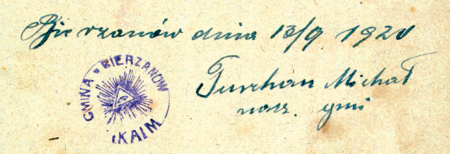 Bierzanów dnia 13/9 1920
Turchan Michał
nacz. gmi
GMINA BIERZANÓW
KAIM